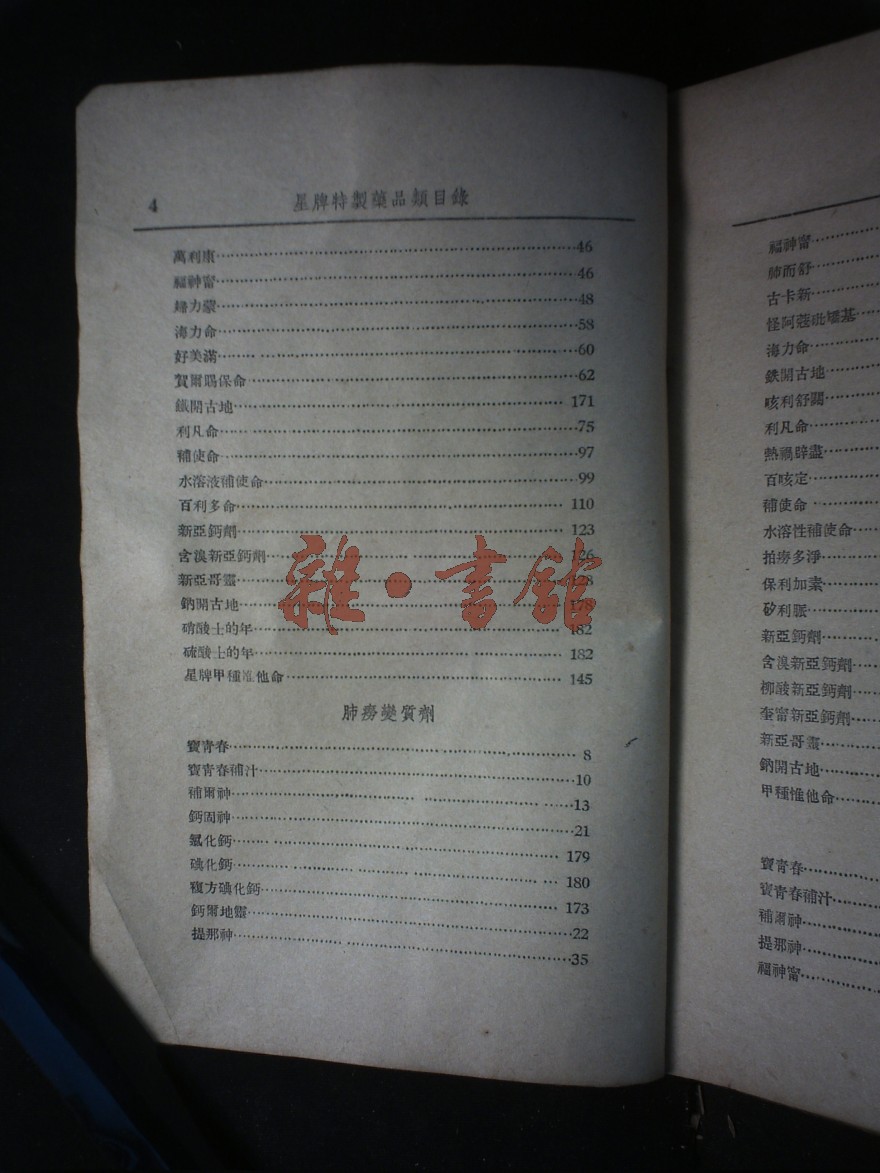 4 星牌特製藥品類目錄
萬利康 46
福神甯 46
48
海力命 58
好美滿 60
賀爾賜保命 62
鐵開古地 171
利凡命 75
補使命 97
水溶液補使命 99
百利多命 110
新亞鈣劑 123
含溴新亞鈣劑 126
新亞哥靈 128
鈉開古地 178
硝酸士的年 182
硫酸士的年 182
星牌甲種維他命 145
肺癆變質劑
寶青春 8
寶青春補汁 10
補爾神 13
鈣固神 21
氯化鈣 179
碘化鈣 180
複方碘化鈣 173
鈣爾地靈 22
提那神 35
雜·書舘
福神甯
肺而舒
古卡新
海力命
鉄開古地
咳利舒關
利凡命
百咳定
補使命
水溶性補使命
拍癆多淨
保利加素
矽利脈
新亞鈣劑
含溴新亞鈣劑
柳酸新亞鈣劑
奎甯新亞鈣劑
新亞哥靈
鈉開古地
甲種惟他命
寶青春
寶青春補汁
補爾神
提那神
福神甯